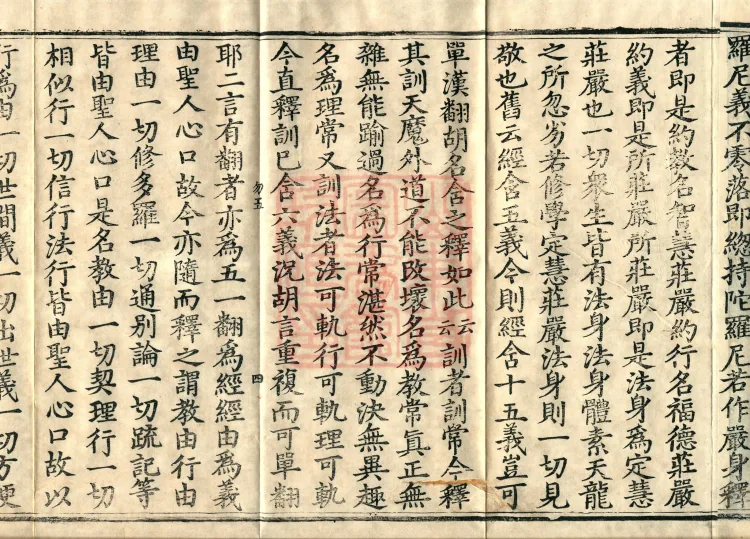 羅尼義不零落即總持陀羅尼若作嚴身釋
者即是約教名智慧莊嚴約行名福德莊嚴
約義即是所莊嚴所莊嚴即是法身為定慧
莊嚴也一切衆生皆有法身法身體素天龍
之所忽劣若修學定慧莊嚴法身則一切見
敬也舊云經含五義今則經含十五義豈可
單漢翻胡名含之釋如此云云訓者訓常令釋
其訓天魔外道不能改壞名為教常眞正無
雜無能踰過名為行常湛然不動決無異趣
名為理常又訓法者法可軌行可軌理可軌
今直釋訓已含六義況胡言重複而可單翻
耶二言有翻者亦為五一翻為經經由為義
由聖人心口故今亦隨而釋之謂教由行由
理由一切修多羅一切通別論一切疏記等
皆由聖人心口是名教由一切契理行一切
相似行一切信行法行皆由聖人心口故以
行為由一切世間義一切出世義一切方便
勿五
四